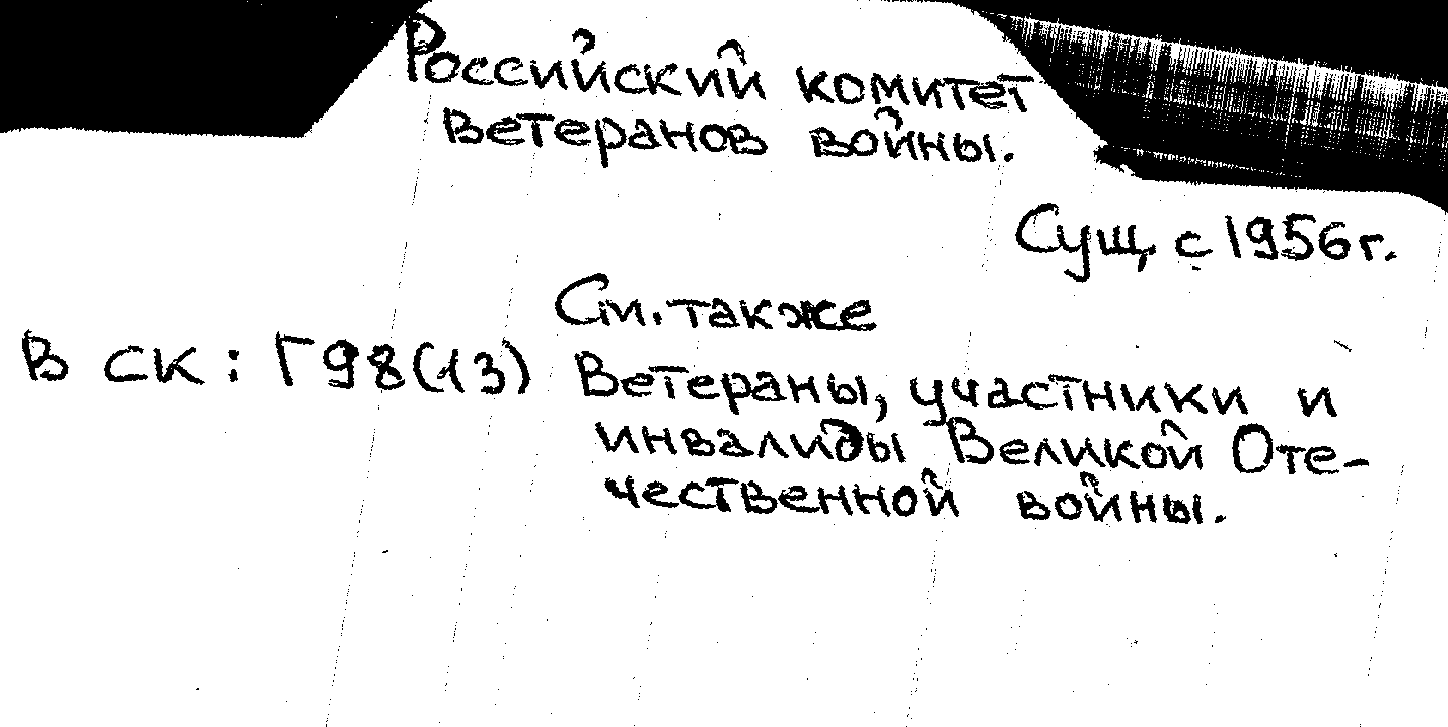 Российский комитет
ветеранов войны.
Сущ. с 1956 г.
См. также
В СК: Г98(13) Ветераны, участники и
инвалиды Великой Оте-
чественной войны.